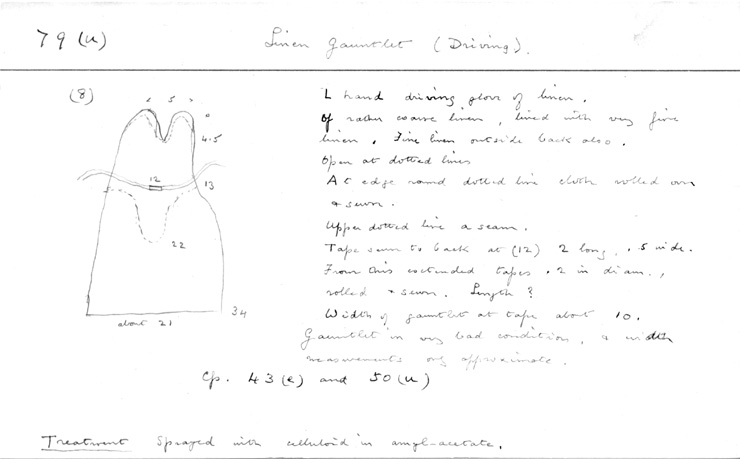 79 (u) Linen Gauntlet (Driving).
(8)
5
4.5
12
13
22
34
about 21
L hand driving glove of linen.
Of rather coarse linen, lined with very fine
linen. Fine linen outside back also.
Open at dotted lines
At edge round dotted line cloth rolled over
& sewn.
Upper dotted line a seam.
Tape sewn to back at (12) 2 long, .5 wide.
From this extended tapes .2 in diam.,
rolled & sewn. Length ?
Width of gauntlet at tape about 10.
Gauntlet in very bad condition, & width
measurements only approximate.
Cp. 43 (e) and 50 (u)
Treatment Sprayed with celluloid in amyl-acetate.